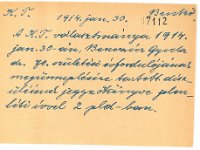 K. T. 1914. jan. 30. Benkő.
17112
A K.T. választmánya 1914.
jan. 30-án, Benczúr Gyula
dr. 70. születési évfordulójának
megünneplésére tartott dísz-
ülésének jegyzőkönyve
2 pld-ban.